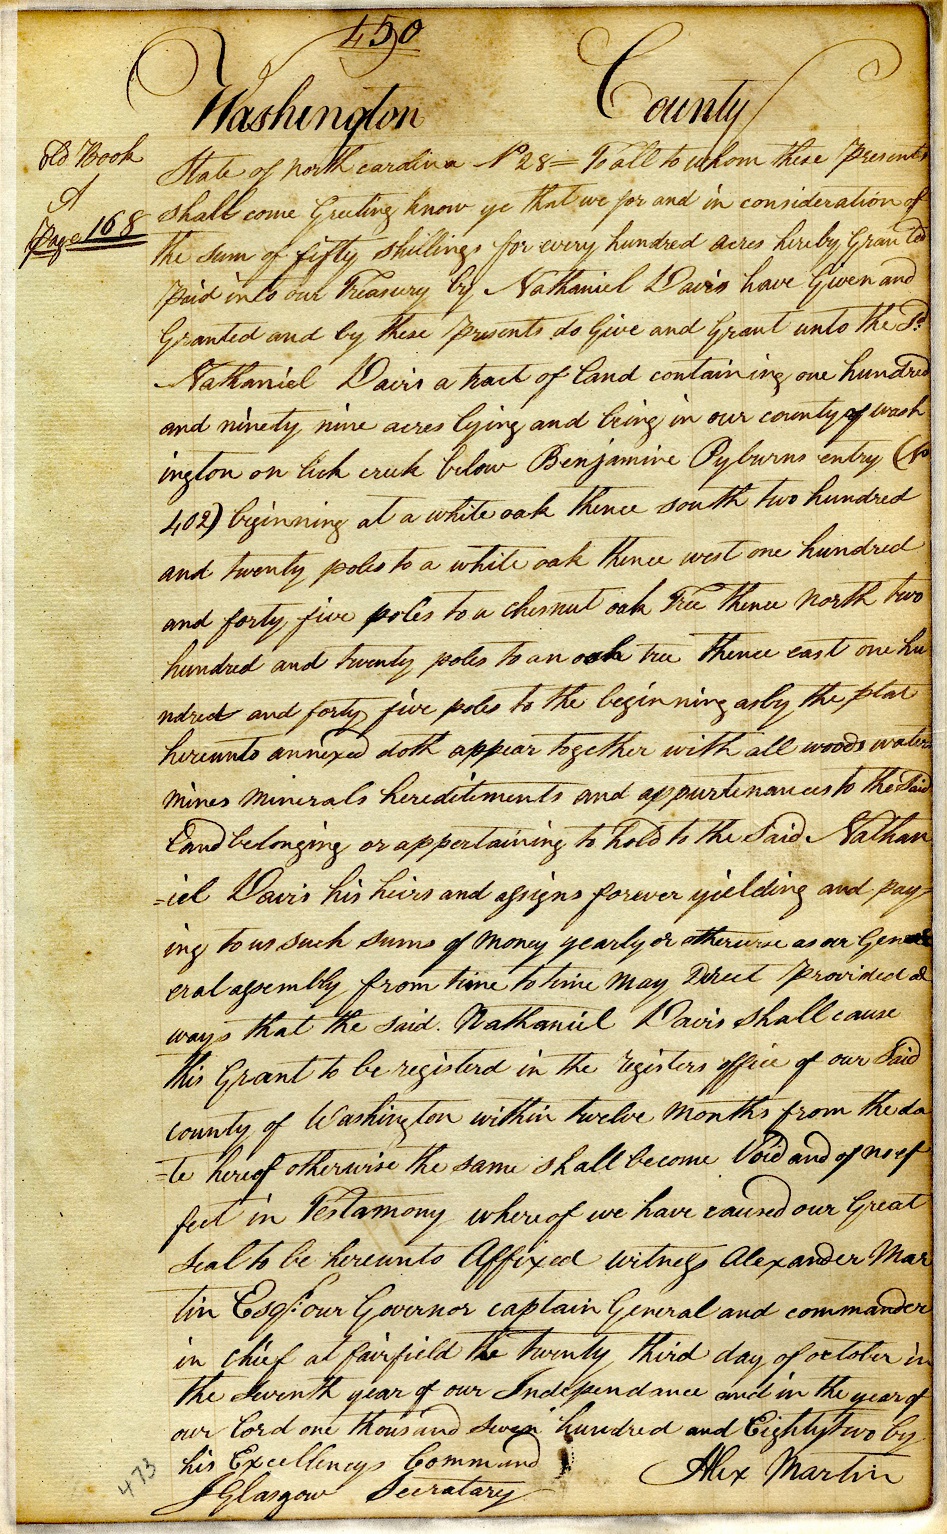 450
Washington County
Old Book
A
Page 168
State of north carolina No 28 = To all to whom these Presents
shall come Greeting know ye that we for and in consideration of
the sum of fifty shillings for every hundred acres hereby Granted
paid into our Treasury by Nathaniel Davis have Given and
Granted and by these presents do Give and Grant unto the Sd
Nathaniel Davis a tract of land containing one hundred
and ninety nine acres lying and being in our county of wash
ington on lick creek below Benjamine Pyburns entry (No
402) beginning at a white oak thence south two hundred
and twenty poles to a white oak thence west one hundred
and forty five poles to a chesnut oak Tree thence North two
hundred and twenty poles to an oak tree thence east one hu
ndred and forty five poles to the beginning as by the plat
hereunto annexed doth appear together with all woods waters
mines minerals hereditiments and appurtenances to the said
land belonging or appertaining to hold to the said Nathan
=iel Davis his heirs and assigns forever yielding and pay=
ing to us such sums of money yearly or otherwise as our Gen
eral assembly from time to time may Direct Provided al
ways that the said. Nathaniel Davis shall cause
this Grant to be registerd in the registers office of our said
county of Washington within twelve months from the da
=te hereof otherwise the same shall become Void and of no ef
fect in Testamony whereof we have caused our Great
seal to be hereunto Affixed witness Alexander Mar
tin Esqr. our Governor captain General and commander
in chief at fairfield the twenty third day of october in
the seventh year of our Independance and in the year of
our lord one thousand seven hundred and Eighty two by
his Excellencys Command
Alex Martin
J Glasgow Secratary
473